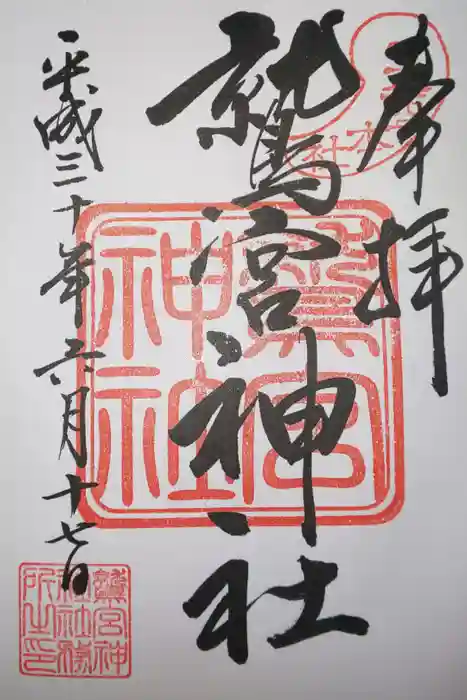 奉拝
鷲宮神社
平成三十年六月十七日
鷲宮神社
鷲宮神社社務所之印